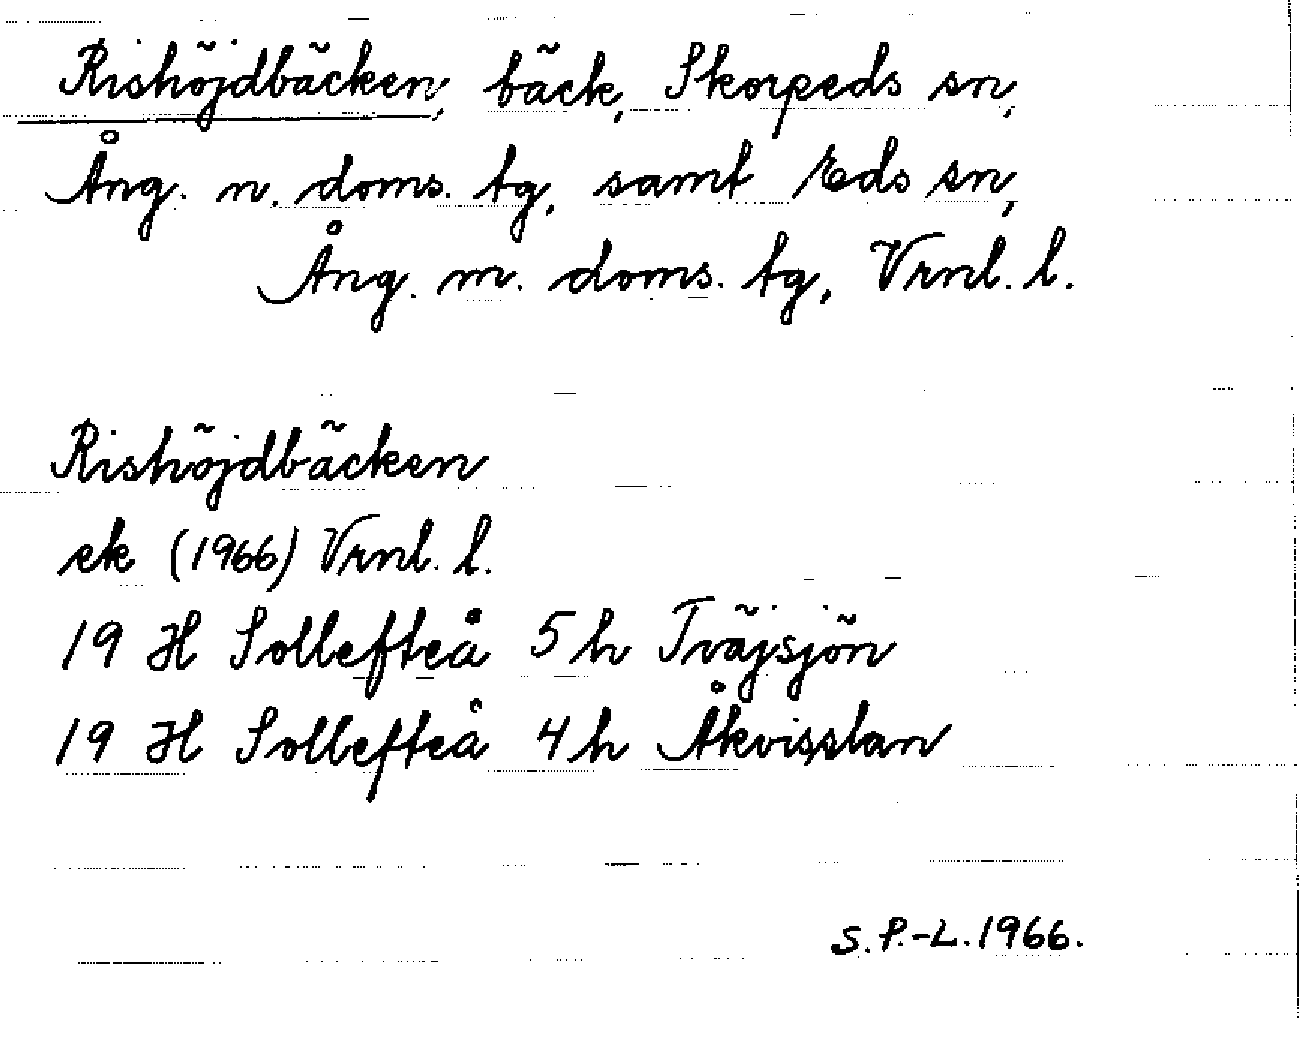 Rishöjdbäcken, bäck, Skorpeds sn,
Ång. n. doms. tg, samt Eds sn,
Ång. m. doms. tg, Vrnl. l.
Rishöjdbäcken
ek (1966) Vrnl. l.
19 H Sollefteå 5 h Tväjsjön
19 H Sollefteå 4 h Åkvisslan
S. P.-L. 1966.